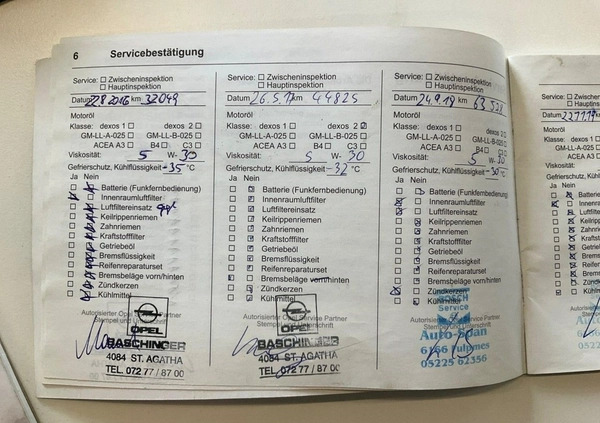 6 Servicebestätigung
Service: ☐ Zwischeninspektion
☐ Hauptinspektion
Datum 22.8.2016 km 32049
Motoröl
Klasse: dexos 1 ☐ dexos 2 ☐
GM-LL-A-025 ☐ GM-LL-B-025 ☐
ACEA A3 ☐ B4 ☐ C3 ☐
Viskosität: 5 W- 30
Gefrierschutz, Kühlflüssigkeit -35 °C
Ja Nein
Batterie (Funkfernbedienung)
Innenraumluftfilter
Luftfiltereinsatz
Keilrippenriemen
Zahnriemen
Kraftstofffilter
Getriebeöl
Bremsflüssigkeit
Reifenreparaturset
Bremsbeläge vorn/hinten
Zündkerzen
Kühlmittel
Autorisierter Opel Service Partner
Stempel und Unterschrift
OPEL
BASCHINGER
4084 ST. AGATHA
TEL. 072 77 / 87 00
Service: ☐ Zwischeninspektion
☐ Hauptinspektion
Datum 26.5.17 km 44825
Motoröl
Klasse: dexos 1 ☐ dexos 2 ☑
GM-LL-A-025 ☐ GM-LL-B-025 ☐
ACEA A3 ☐ B4 ☐ C3 ☐
Viskosität: 5 W- 30
Gefrierschutz, Kühlflüssigkeit -32 °C
Ja Nein
Batterie (Funkfernbedienung)
Innenraumluftfilter
Luftfiltereinsatz
Keilrippenriemen
Zahnriemen
Kraftstofffilter
Getriebeöl
Bremsflüssigkeit
Reifenreparaturset
Bremsbeläge vorn/hinten
Zündkerzen
Kühlmittel
Autorisierter Opel Service Partner
Stempel und Unterschrift
OPEL
BASCHINGER
4084 ST. AGATHA
TEL. 072 77 / 87 00
Service: ☐ Zwischeninspektion
☐ Hauptinspektion
Datum km
Motoröl
Klasse: dexos 1 ☐ dexos 2
GM-LL-A-025 ☐ GM-LL-B-025 ☐
ACEA A3 ☐ B4 ☐ C3 ☐
Viskosität: 5 W- 30
Gefrierschutz, Kühlflüssigkeit -30 °C
Ja Nein
Batterie (Funkfernbedienung)
Innenraumluftfilter
Luftfiltereinsatz
Keilrippenriemen
Zahnriemen
Kraftstofffilter
Getriebeöl
Bremsflüssigkeit
Reifenreparaturset
Bremsbeläge vorn/hinten
Zündkerzen
Kühlmittel
Autorisierter
BOSCH
Service
6166 Fulpmes
05225 62356
Service:
Datum
Motoröl
Klasse:
Viskosität:
Gefrierschutz
Ja Nein